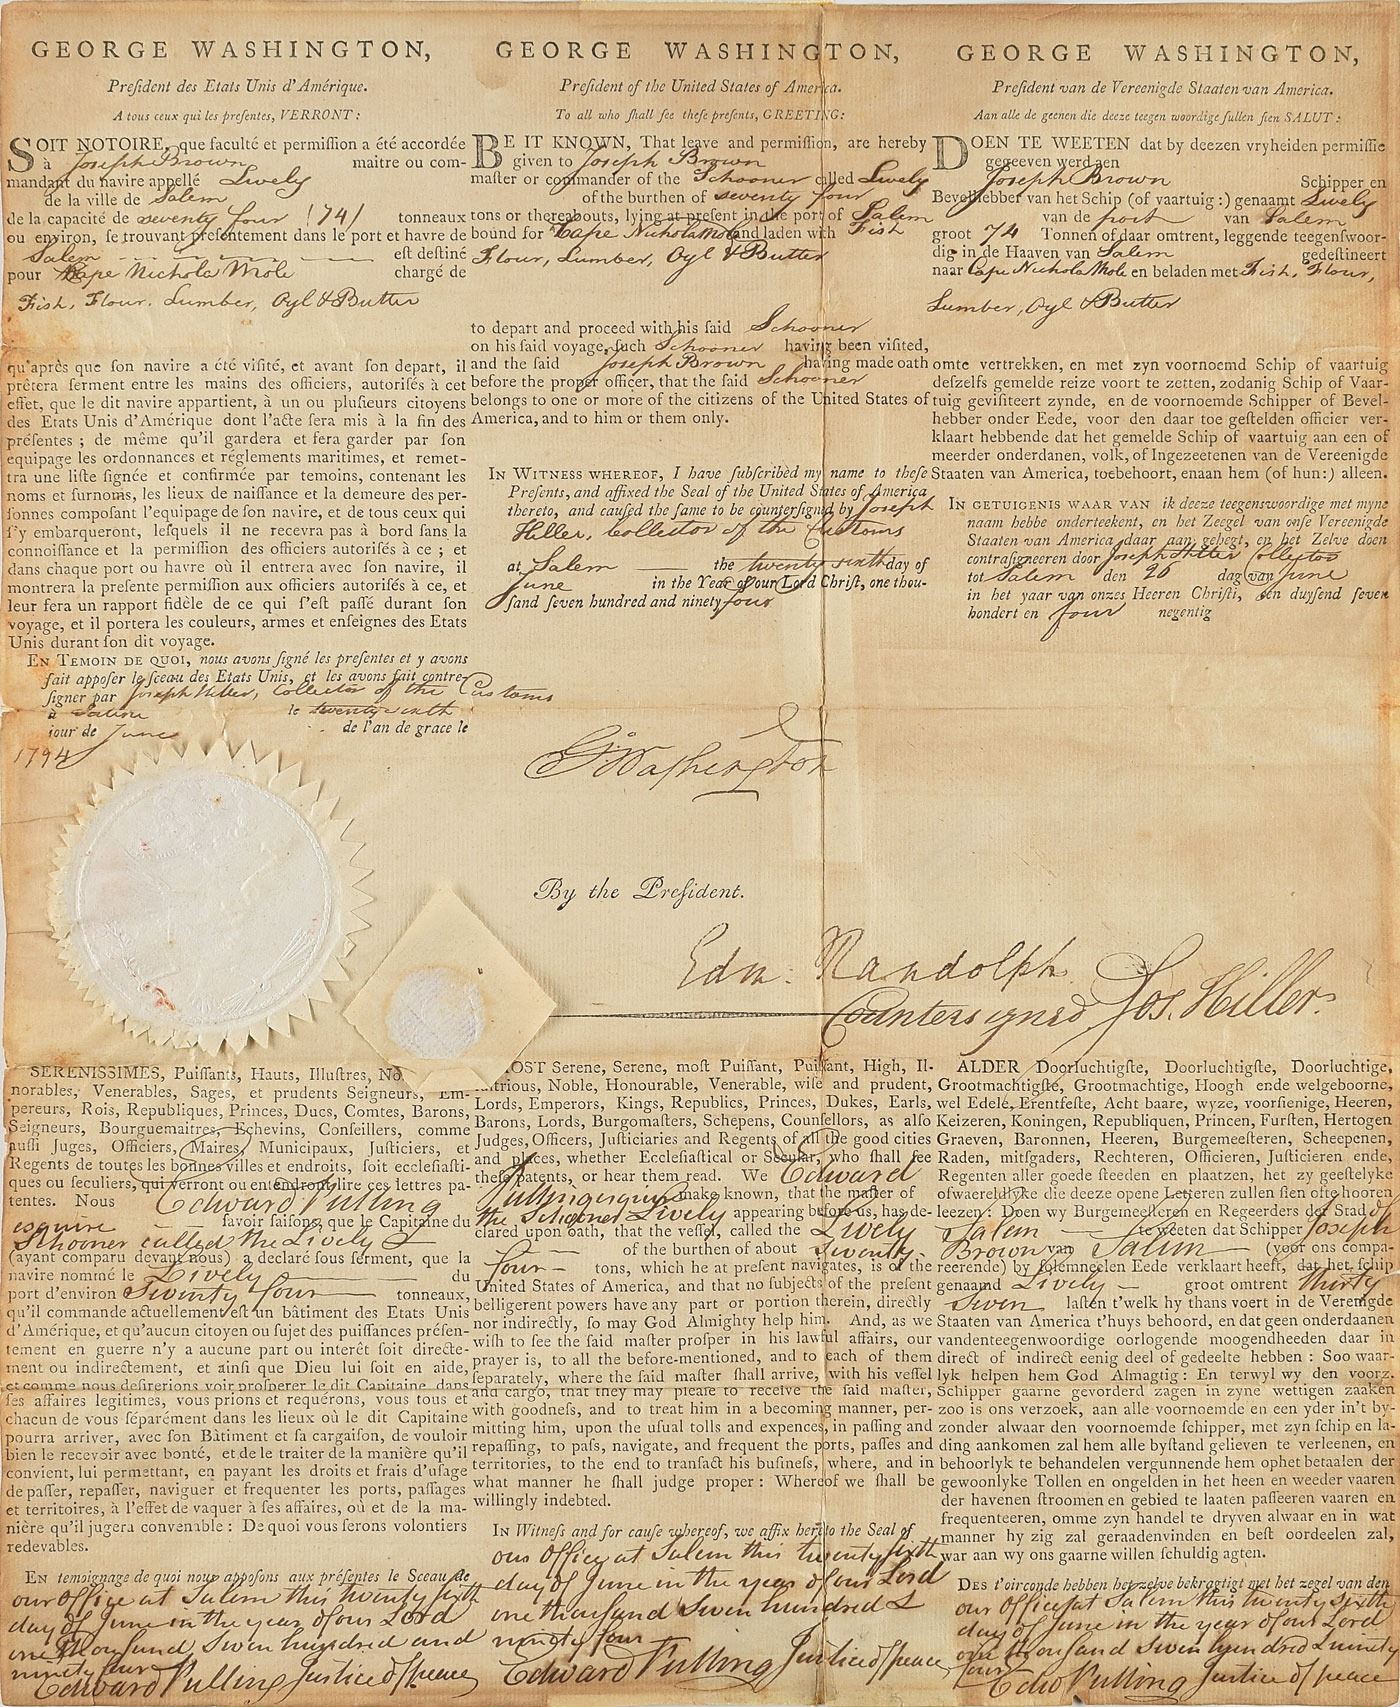 GEORGE WASHINGTON,
Preſident des Etats Unis d'Amérique.
A tous ceux qui les preſentes, VERRONT:
SOIT NOTOIRE, que faculté et permiſſion a été accordée
à Joseph Brown maitre ou com-
mandant du navire appellé Lively
de la ville de Salem
de la capacité de seventy four (74) tonneaux
ou environ, ſe trouvant preſentement dans le port et havre de
Salem eſt deſtiné
pour Cape Nichola Mole chargé de
Fish, Flour, Lumber, Oyl & Butter
qu'après que ſon navire a été viſité, et avant ſon depart, il
prêtera ſerment entre les mains des officiers, autoriſés à cet
effet, que le dit navire appartient, à un ou pluſieurs citoyens
des Etats Unis d'Amérique dont l'acte ſera mis à la fin des
préſentes; de même qu'il gardera et fera garder par ſon
equipage les ordonnances et réglements maritimes, et remet-
tra une liſte ſignée et confirmée par temoins, contenant les
noms et furnoms, les lieux de naiſſance et la demeure des per-
ſonnes compoſant l'equipage de ſon navire, et de tous ceux qui
ſ'y embarqueront, leſquels il ne recevra pas à bord ſans la
connoiſſance et la permiſſion des officiers autoriſés à ce; et
dans chaque port ou havre où il entrera avec ſon navire, il
montrera la preſente permiſſion aux officiers autoriſés à ce, et
leur fera un rapport fidèle de ce qui ſ'eſt paſſé durant ſon
voyage, et il portera les couleurs, armes et enſeignes des Etats
Unis durant ſon dit voyage.
EN TEMOIN DE QUOI, nous avons ſigné les preſentes et y avons
fait appoſer le ſceau des Etats Unis, et les avons fait contre-
ſigner par Joseph Hiller, Collector of the Customs
à Salem le twenty sixth
jour de June de l'an de grace le
1794
GEORGE WASHINGTON,
Preſident of the United States of America.
To all who ſhall ſee theſe preſents, GREETING:
BE IT KNOWN, That leave and permiſſion, are hereby
given to Joseph Brown
maſter or commander of the Schooner called Lively
of the burthen of seventy four
tons or thereabouts, lying at preſent in the port of Salem
bound for Cape Nichola Mole and laden with Fish
Flour, Lumber, Oyl & Butter
to depart and proceed with his ſaid Schooner
on his ſaid voyage, ſuch Schooner having been viſited,
and the ſaid Joseph Brown having made oath
before the proper officer, that the ſaid Schooner
belongs to one or more of the citizens of the United States of
America, and to him or them only.
IN WITNESS WHEREOF, I have ſubſcribed my name to theſe
Preſents, and affixed the Seal of the United States of America
thereto, and cauſed the ſame to be counterſigned by Joseph
Hiller, Collector of the Customs
at Salem the twenty sixth day of
June in the Year of our Lord Chriſt, one thou-
ſand ſeven hundred and ninety four
GEORGE WASHINGTON,
Preſident van de Vereenigde Staaten van America.
Aan alle de geenen die deeze teegen woordige ſullen ſien SALUT:
DOEN TE WEETEN dat by deezen vryheiden permiſſie
gegeeven werd aen
Joseph Brown Schipper en
Bevelhebber van het Schip (of vaartuig:) genaamt Lively
van de port van Salem
groot 74 Tonnen of daar omtrent, leggende teegenſwoor-
dig in de Haaven van Salem gedeſtineert
naar Cape Nichola Mole en beladen met Fish, Flour,
Lumber, Oyl & Butter
omte vertrekken, en met zyn voornoemd Schip of vaartuig
deſzelfs gemelde reize voort te zetten, zodanig Schip of Vaar-
tuig geviſiteert zynde, en de voornoemde Schipper of Bevel-
hebber onder Eede, voor den daar toe geſtelden officier ver-
klaart hebbende dat het gemelde Schip of vaartuig aan een of
meerder onderdanen, volk, of Ingezeetenen van de Vereenigde
Staaten van America, toebehoort, enaan hem (of hun:) alleen.
IN GETUIGENIS WAAR VAN ik deeze teegenswoordige met myne
naam hebbe onderteekent, en het Zeegel van onſe Vereenigde
Staaten van America daar aan gehegt, en het Zelve doen
contraſigneeren door Joseph Hiller Collector
tot Salem den 26 dag van June
in het yaar van onzes Heeren Chriſti, een duyſend ſeven
hondert en four negentig
G Washington
By the Preſident.
Edm: Randolph
Countersigned Jos. Hiller
SERENISSIMES, Puiſſants, Hauts, Illuſtres,
norables, Venerables, Sages, et prudents Seigneurs, Em-
pereurs, Rois, Republiques, Princes, Ducs, Comtes, Barons,
Seigneurs, Bourguemaitres, Echevins, Conſeillers, comme
auſſi Juges, Officiers, Maires, Municipaux, Juſticiers, et
Regents de toutes les bonnes villes et endroits, ſoit eccleſiaſti-
ques ou ſeculiers, qui verront ou entendront lire ces lettres pa-
tentes. Nous Edward Pulling
esquire favoir faiſons, que le Capitaine du
Schooner called the Lively
(ayant comparu devant nous) a declaré ſous ſerment, que la
navire nommé le Lively du
port d'environ Seventy four tonneaux,
qu'il commande actuellement eſt un bâtiment des Etats Unis
d'Amérique, et qu'aucun citoyen ou ſujet des puiſſances préſen-
tement en guerre n'y a aucune part ou interêt ſoit directe-
ment ou indirectement, et ainſi que Dieu lui ſoit en aide,
et comme nous deſirerions voir proſperer le dit Capitaine dans
ſes affaires legitimes, vous prions et requérons, vous tous et
chacun de vous ſéparément dans les lieux où le dit Capitaine
pourra arriver, avec ſon Bâtiment et ſa cargaiſon, de vouloir
bien le recevoir avec bonté, et de le traiter de la manière qu'il
convient, lui permettant, en payant les droits et frais d'uſage
de paſſer, repaſſer, naviguer et frequenter les ports, paſſages
et territoires, à l'effet de vaquer à ſes affaires, où et de la ma-
nière qu'il jugera convenable: De quoi vous ſerons volontiers
redevables.
EN temoignage de quoi nous appoſons aux préſentes le Sceau de
our office at Salem this twenty sixth
day of June in the year of our Lord
one thousand Seven hundred and
ninety four
Edward Pulling Justice of peace
MOST Serene, Serene, moſt Puiſſant, Puiſſant, High, Il-
luſtrious, Noble, Honourable, Venerable, wiſe and prudent,
Lords, Emperors, Kings, Republics, Princes, Dukes, Earls,
Barons, Lords, Burgomaſters, Schepens, Counſellors, as alſo
Judges, Officers, Juſticiaries and Regents of all the good cities
and places, whether Eccleſiaſtical or Secular, who ſhall ſee
theſe patents, or hear them read. We Edward
Pulling esquire make known, that the maſter of
the Schooner Lively appearing before us, has de-
clared upon oath, that the veſſel, called the Lively
of the burthen of about Seventy-
four tons, which he at preſent navigates, is of the
United States of America, and that no ſubjects of the preſent
belligerent powers have any part or portion therein, directly
nor indirectly, ſo may God Almighty help him. And, as we
wiſh to ſee the ſaid maſter proſper in his lawful affairs, our
prayer is, to all the before-mentioned, and to each of them
ſeparately, where the ſaid maſter ſhall arrive, with his veſſel
and cargo, that they may pleaſe to receive the ſaid maſter,
with goodneſs, and to treat him in a becoming manner, per-
mitting him, upon the uſual tolls and expences, in paſſing and
repaſſing, to paſs, navigate, and frequent the ports, paſſes and
territories, to the end to tranſact his buſineſs, where, and in
what manner he ſhall judge proper: Whereof we ſhall be
willingly indebted.
IN Witneſs and for cauſe whereof, we affix hereto the Seal of
our Office at Salem this twenty sixth
day of June in the year of our Lord
one thousand Seven hundred &
ninety four
Edward Pulling Justice of peace
ALDER Doorluchtigſte, Doorluchtigſte, Doorluchtige,
Grootmachtigſte, Grootmachtige, Hoogh ende welgeboorne,
wel Edele, Erentfeſte, Acht baare, wyze, voorſienige, Heeren,
Keizeren, Koningen, Republiquen, Princen, Furſten, Hertogen
Graeven, Baronnen, Heeren, Burgemeeſteren, Scheepenen,
Raden, mitſgaders, Rechteren, Officieren, Juſticieren ende,
Regenten aller goede ſteeden en plaatzen, het zy geeſtelyke
ofwaereldlyke die deeze opene Letteren zullen ſien ofte hooren
leezen: Doen wy Burgemeeſteren en Regeerders der Stad of
Salem te weeten dat Schipper Joseph
Brown van Salem (voor ons compa-
reerende) by ſolemneelen Eede verklaart heeft, dat het Schip
genaamd Lively groot omtrent thirty
Seven laſten t'welk hy thans voert in de Verenigde
Staaten van America t'huys behoord, en dat geen onderdaanen
vandenteegenwoordige oorlogende moogendheeden daar in
direct of indirect eenig deel of gedeelte hebben: Soo waar-
lyk helpen hem God Almagtig: En terwyl wy den voorz.
Schipper gaarne gevorderd zagen in zyne wettigen zaaken
zoo is ons verzoek, aan alle voornoemde en een yder in't by-
zonder alwaar den voornoemde ſchipper, met zyn ſchip en la-
ding aankomen zal hem alle byſtand gelieven te verleenen, en
behoorlyk te behandelen vergunnende hem ophet betaalen der
gewoonlyke Tollen en ongelden in het heen en weeder vaaren
der havenen ſtroomen en gebied te laaten paſſeeren vaaren en
frequenteeren, omme zyn handel te dryven alwaar en in wat
manner hy zig zal geraadenvinden en beſt oordeelen zal,
war aan wy ons gaarne willen ſchuldig agten.
DES t'oirconde hebben het zelve bekragtigt met het zegel van den
our Office at Salem this twenty sixth
day of June in the year of our Lord
one thousand Seven hundred & ninety
four
Edwd Pulling Justice of peace